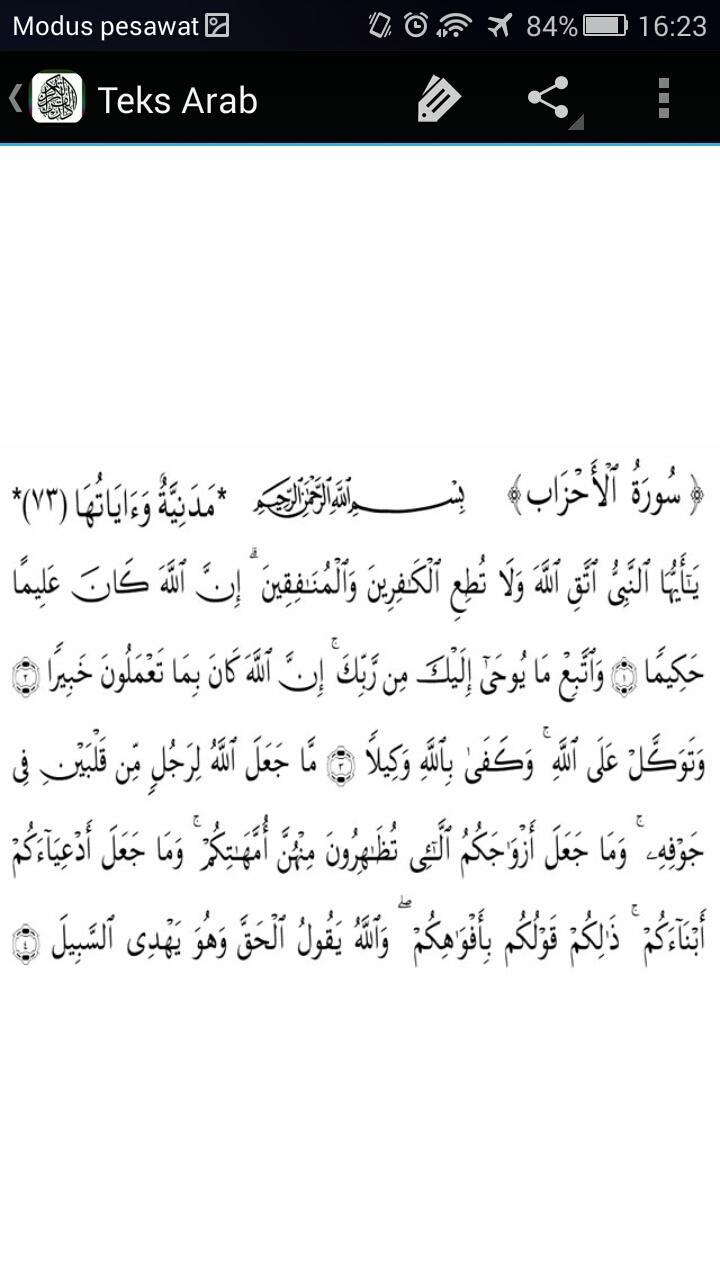 Modus pesawat 84% 16:23
Teks Arab
﴿ سُورَةُ ٱلْأَحْزَاب ﴾ بِسْمِ ٱللَّهِ ٱلرَّحْمَٰنِ ٱلرَّحِيمِ *مَدَنِيَّةٌ وَءَايَاتُهَا (٧٣)*
يَـٰٓأَيُّهَا ٱلنَّبِىُّ ٱتَّقِ ٱللَّهَ وَلَا تُطِعِ ٱلْكَـٰفِرِينَ وَٱلْمُنَـٰفِقِينَ ۗ إِنَّ ٱللَّهَ كَانَ عَلِيمًا
حَكِيمًا ١ وَٱتَّبِعْ مَا يُوحَىٰٓ إِلَيْكَ مِن رَّبِّكَ ۚ إِنَّ ٱللَّهَ كَانَ بِمَا تَعْمَلُونَ خَبِيرًا ٢
وَتَوَكَّلْ عَلَى ٱللَّهِ ۚ وَكَفَىٰ بِٱللَّهِ وَكِيلًا ٣ مَّا جَعَلَ ٱللَّهُ لِرَجُلٍ مِّن قَلْبَيْنِ فِى
جَوْفِهِۦ ۚ وَمَا جَعَلَ أَزْوَٰجَكُمُ ٱلَّـٰٓـِٔى تُظَـٰهِرُونَ مِنْهُنَّ أُمَّهَـٰتِكُمْ ۚ وَمَا جَعَلَ أَدْعِيَآءَكُمْ
أَبْنَآءَكُمْ ۚ ذَٰلِكُمْ قَوْلُكُم بِأَفْوَٰهِكُمْ ۖ وَٱللَّهُ يَقُولُ ٱلْحَقَّ وَهُوَ يَهْدِى ٱلسَّبِيلَ ٤